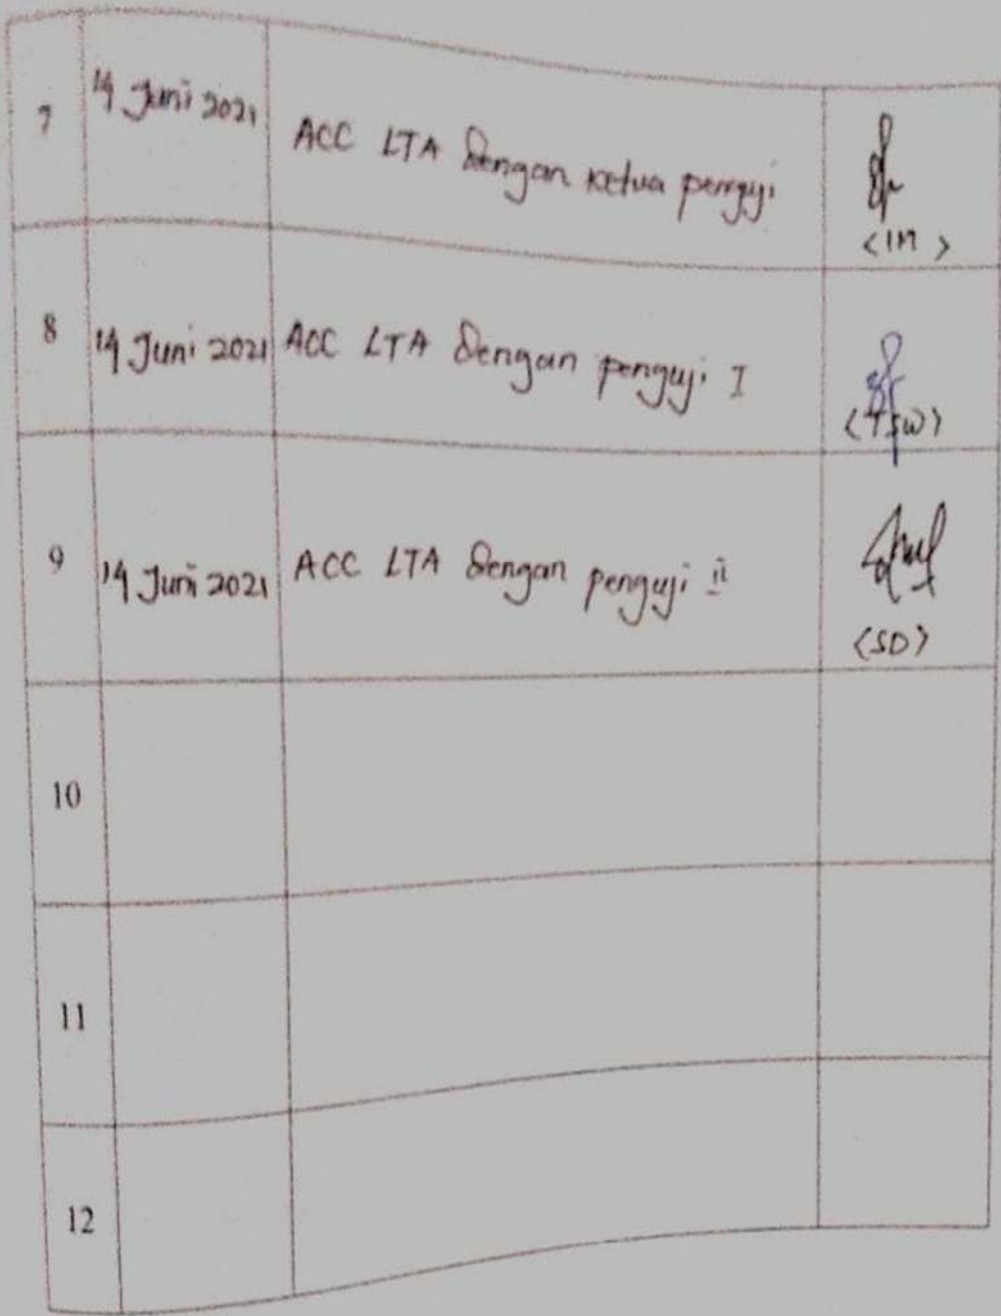 7 14 Juni 2021 ACC LTA Dengan ketua penguji <IM>
8 14 Juni 2021 ACC LTA Dengan penguji I <TSW>
9 14 Juni 2021 ACC LTA Dengan penguji ii <SD>
10
11
12